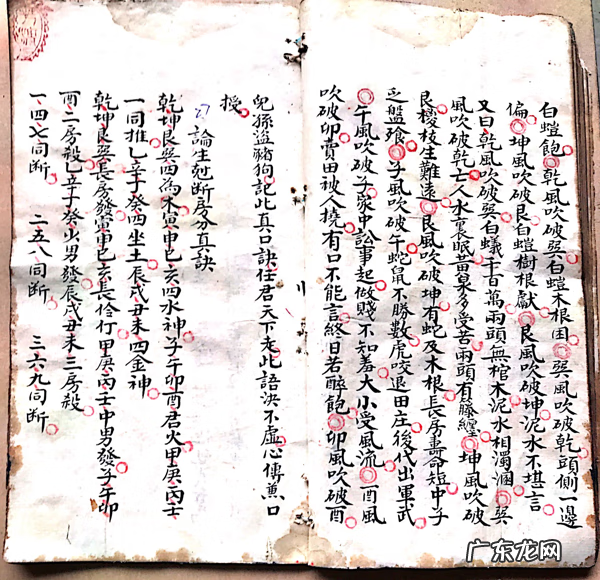 白螘飽乾風吹破巽白螘木根困巽風吹破乾頭側一邊
偏坤風吹破艮白螘樹根獻艮風吹破坤泥水不堪言
又曰乾風吹破巽白蟻千百萬兩頭無棺木泥水相濁溷巽
風吹破乾亡人水裏眠黃泉多受苦兩頭有藤纏坤風吹破
艮樓枝生難遠艮風吹破坤有蛇及木根長房壽命短中子
乏盤飱子風吹破午蛇鼠不勝數虎咬退田庄後代出軍武
午風吹破子家中訟事起做賤不知羞大小受風流酉風
吹破卯賣田被人撓有口不能言終日若醉飽卯風吹破酉
兒孫盜豬狗記此真口訣任君天下走此語決不虛心傳薫口
授
論生尅断房分真訣
乾坤艮巽四為木寅申巳亥四水神子午卯酉君火甲庚丙壬
一同推乙辛丁癸四坐土辰戌丑未四金神
乾坤艮巽長房發寅申巳亥長伶仃甲庚丙壬中男發子午卯
酉二房殺乙辛丁癸少男發辰戌丑未三房殺
一四七同断 二五八同断 三六九同断
广东龙网